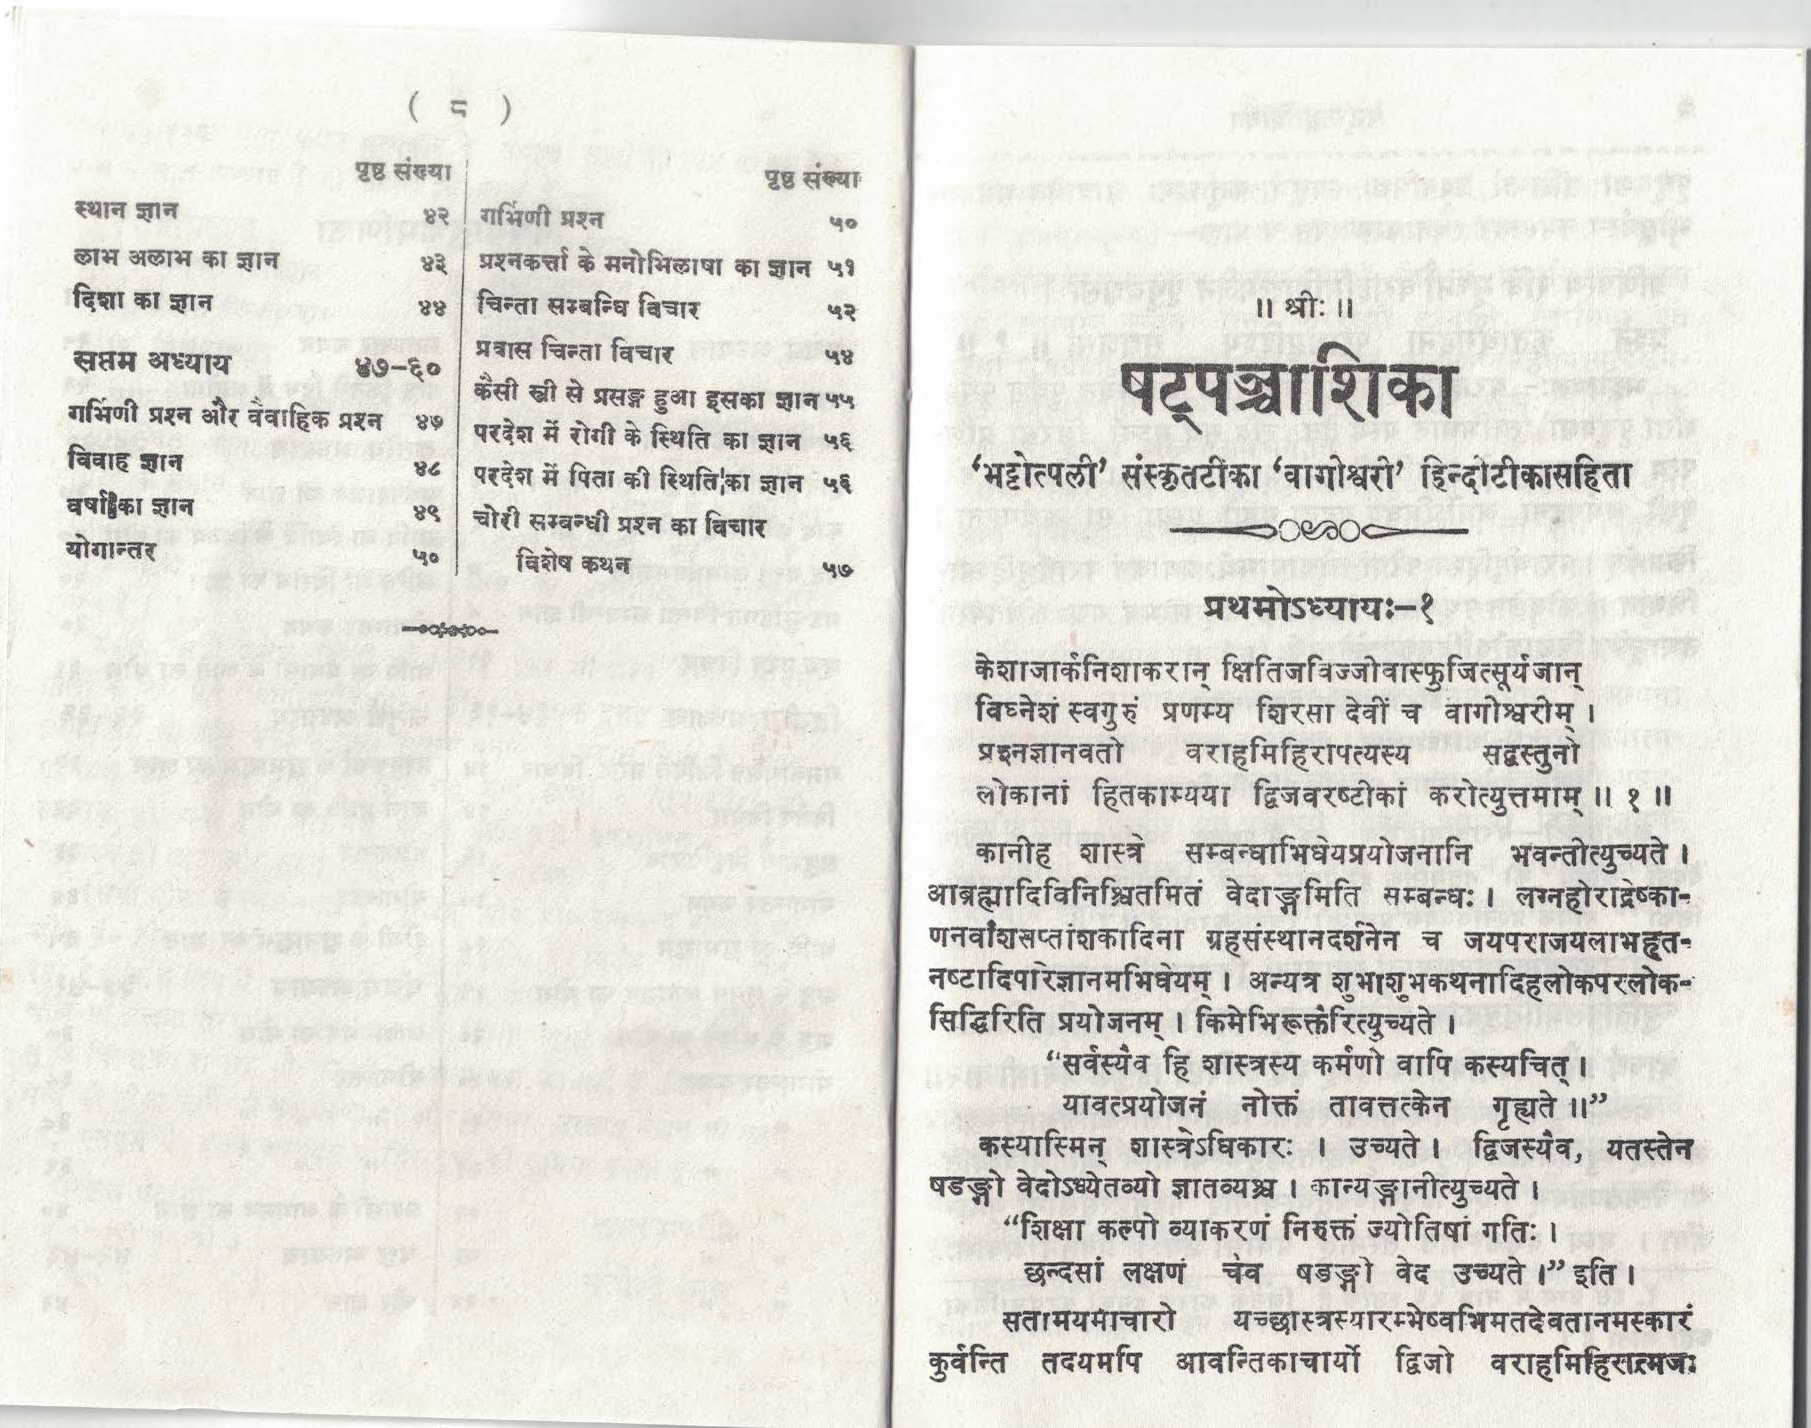 ( ८ )
पृष्ठ संख्या
स्थान ज्ञान ४२
लाभ अलाभ का ज्ञान ४३
दिशा का ज्ञान ४४
सप्तम अध्याय ४७-६०
गर्भिणी प्रश्न और वैवाहिक प्रश्न ४७
विवाह ज्ञान ४८
वर्षा का ज्ञान ४९
योगान्तर ५०
पृष्ठ संख्या
गर्भिणी प्रश्न ५०
प्रश्नकर्त्ता के मनोभिलाषा का ज्ञान ५१
चिन्ता सम्बन्धि विचार ५२
प्रवास चिन्ता विचार ५४
कैसी स्त्री से प्रसङ्ग हुआ इसका ज्ञान ५५
परदेश में रोगी के स्थिति का ज्ञान ५६
परदेश में पिता की स्थिति का ज्ञान ५६
चोरी सम्बन्धी प्रश्न का विचार
विशेष कथन ५७
॥ श्रीः ॥
षट्पञ्चाशिका
‘भट्टोत्पली’ संस्कृतटीका ‘वागीश्वरी’ हिन्दीटीकासहिता
प्रथमोऽध्यायः-१
केशाजार्कनिशाकरान् क्षितिजविज्जीवास्फुजित्सूर्यजान्
विघ्नेशं स्वगुरुं प्रणम्य शिरसा देवीं च वागीश्वरीम् ।
प्रश्नज्ञानवतो वराहमिहिरापत्यस्य सद्वस्तुनो
लोकानां हितकाम्यया द्विजवरष्टीकां करोत्युत्तमाम् ॥ १ ॥
कानीह शास्त्रे सम्बन्धाभिधेयप्रयोजनानि भवन्तीत्युच्यते ।
आब्रह्मादिविनिश्चितमितं वेदाङ्गमिति सम्बन्धः । लग्नहोराद्रेष्का-
णनवांशसप्तांशकादिना ग्रहसंस्थानदर्शनेन च जयपराजयलाभहृत-
नष्टादिपरिज्ञानमभिधेयम् । अन्यत्र शुभाशुभकथनादिहलोकपरलोक-
सिद्धिरिति प्रयोजनम् । किमेभिरूक्तैरित्युच्यते ।
“सर्वस्यैव हि शास्त्रस्य कर्मणो वापि कस्यचित् ।
यावत्प्रयोजनं नोक्तं तावत्तत्केन गृह्यते ॥”
कस्यास्मिन् शास्त्रेऽधिकारः । उच्यते । द्विजस्यैव, यतस्तेन
षडङ्गो वेदोऽध्येतव्यो ज्ञातव्यश्च । कान्यङ्गानीत्युच्यते ।
“शिक्षा कल्पो व्याकरणं निरुक्तं ज्योतिषां गतिः ।
छन्दसां लक्षणं चैव षडङ्गो वेद उच्यते ।” इति ।
सतामयमाचारो यच्छास्त्रस्यारम्भेष्वभिमतदेवतानमस्कारं
कुर्वन्ति तदयमपि आवन्तिकाचार्यो द्विजो वराहमिहिरात्मजः